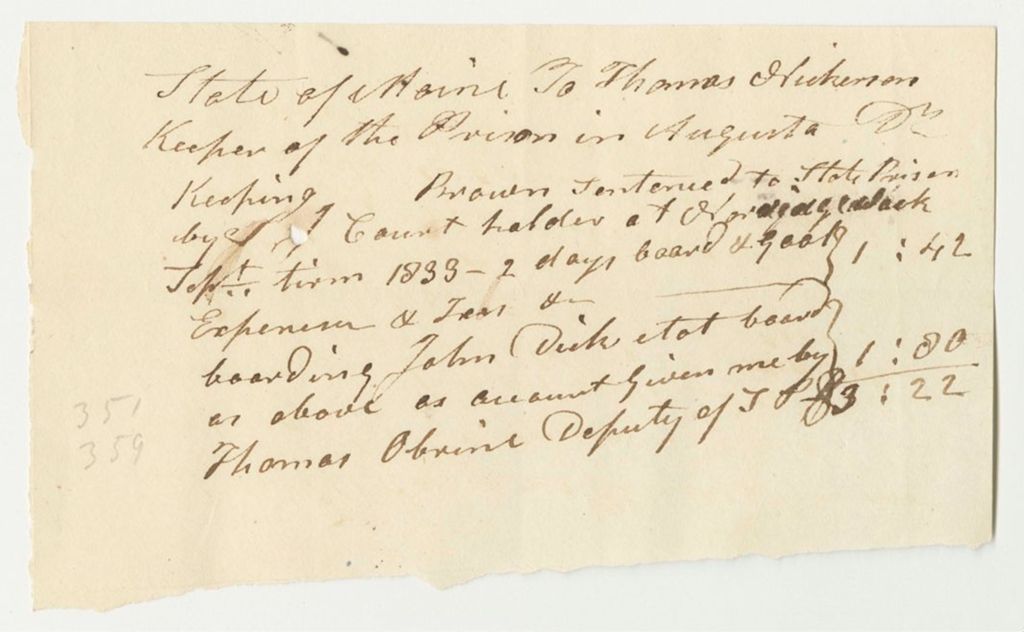 State of Maine To Thomas Nickerson
Keeper of the Prison in Augusta Dr
Keeping Brown Sentenced to State Prison
by Court holden at Norridgewock
Sept. term 1833 – 2 days board & Goal 1 : 42
Expenses & Fees &c
boarding John Dick board
as above as account given me by 1 : 80
Thomas Obrine Deputy of S P $3 : 22
351
359